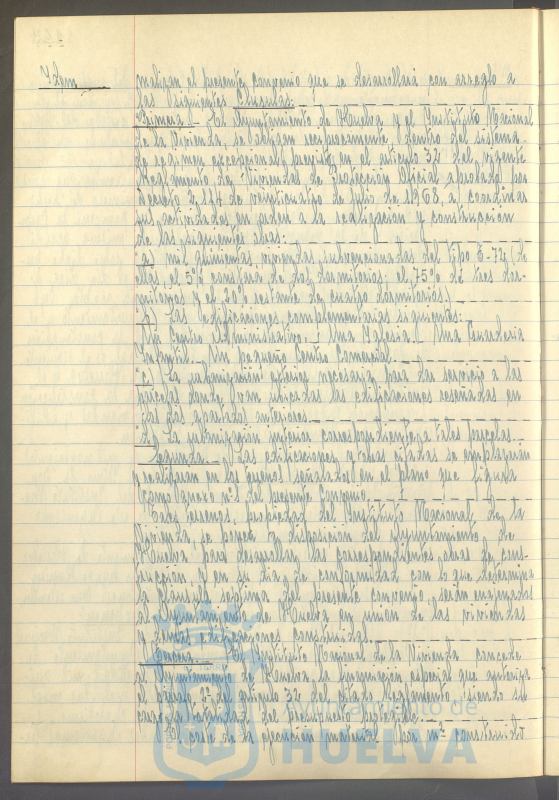 Idem
malizan el presente convenio que se desarrollará con arreglo a
las siguientes Clausulas:
Primera.- El Ayuntamiento de Huelva y el Instituto Nacional
de la Vivienda, se obligan reciprocamente y dentro del sistema
de regimen excepcional previsto en el articulo 32 del vigente
Reglamento de Viviendas de Protección Oficial aprobado por
Decreto 2.114 de veinticuatro de Julio de 1968, a coordinar
sus actividades en orden a la realización y construccion
de las siguientes obras:
a) mil quinientas viviendas subvencionadas del tipo E-72, (de
ellas, el 5% constará de dos dormitorios; el 75% de tres dor-
mitorios y el 20% restante de cuatro dormitorios)
b) Las edificaciones complementarias siguientes:
Un Centro Administrativo.- Una Iglesia.- Una Guarderia
Infantil.- Un pequeño Centro Comercial.
c) La urbanización exterior necesaria para dar servicio a las
parcelas donde van ubicadas las edificaciones reseñadas en
los dos apartados anteriores.
d) La urbanización interior correspondiente a tales parcelas.-
Segunda.- Las edificaciones y obras citadas se emplazarán
y realizarán en los terrenos señalados en el plano que figura
como anexo nº1 del presente Convenio.
Estos terrenos, propiedad del Instituto Nacional de la
Vivienda, se ponen a disposición del Ayuntamiento de
Huelva para desarrollar las correspondientes obras de cons-
trucción, y en su dia de conformidad con lo que determina
la clausula septima del presente convenio, serán enajenados
al Ayuntamiento de Huelva en union de las viviendas
y demás edificaciones construidas.
Tercera.- El Instituto Nacional de la Vivienda concede
al Ayuntamiento de Huelva la financiación especial que autoriza
el párrafo 2º del articulo 32 del citado Reglamento siendo su
cuantía la totalidad del presupuesto protegible.
El coste de la ejecución material por m² construido
Ayuntamiento de
HUELVA